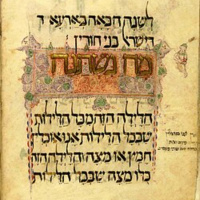 לשנה הבאה בארעא ד
ישראל בני חורין
מה נשתנה
הלילה הזה מכל הלילות
שבכל הלילות אנו אוכלי
חמץ או מצה הלילה הזה
כלו מצה שבכל הלילות